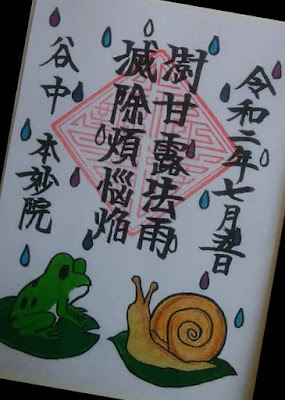 令和二年七月日
澍甘露法雨
滅除煩悩焔
谷中 本妙院